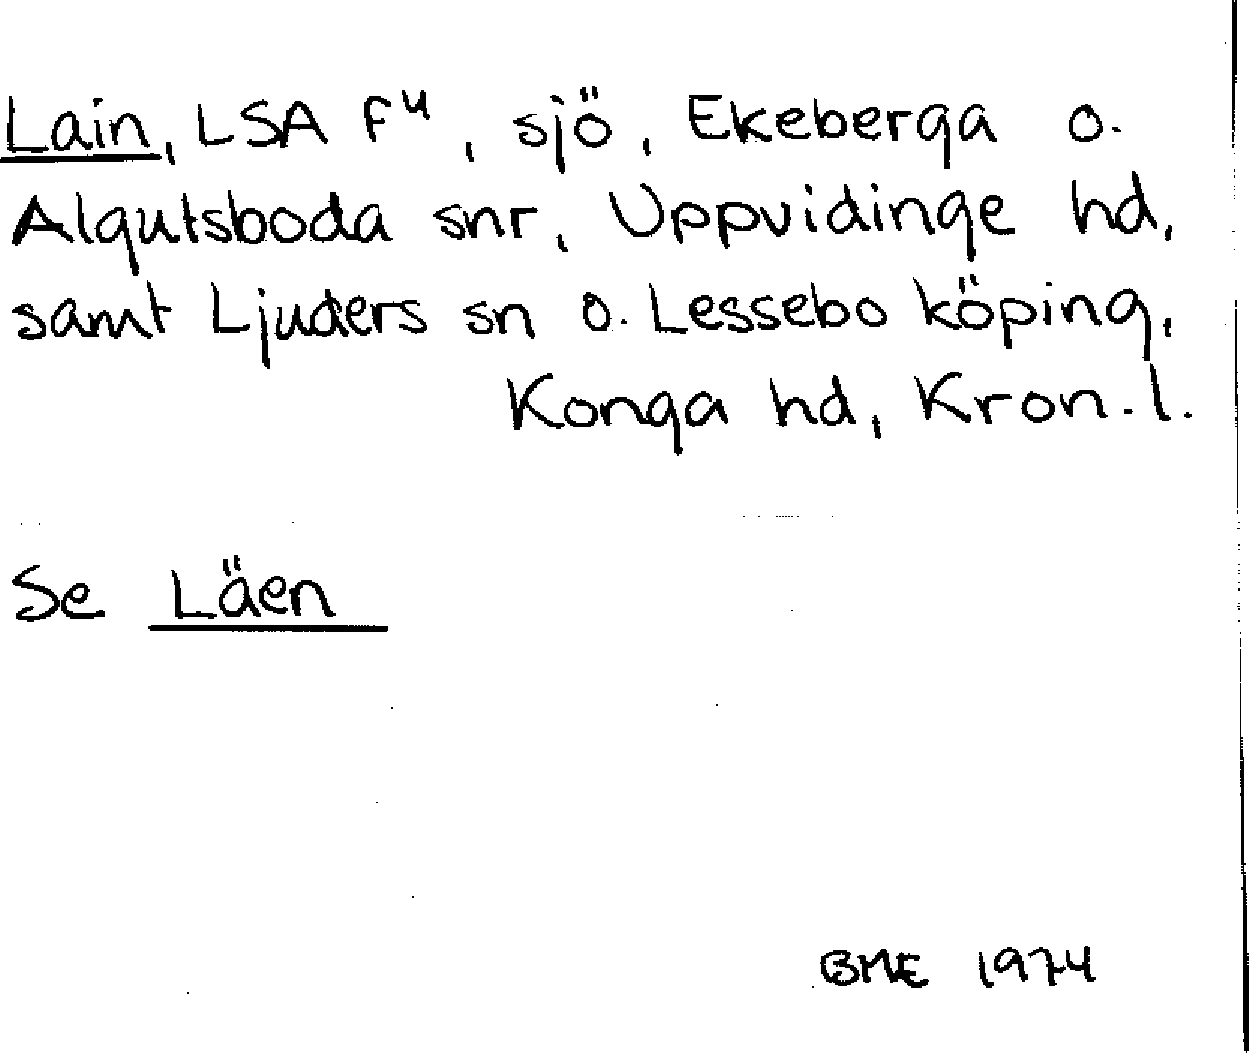 Lain, LSA F⁴, sjö, Ekeberga o.
Algutsboda snr, Uppvidinge hd,
samt Ljuders sn o. Lessebo köping,
Konga hd, Kron. l.
Se Läen
BME 1974